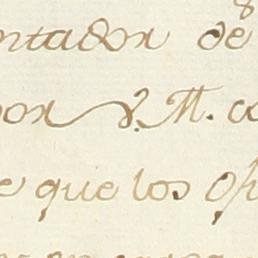 ntador de
por V. M. co
e que los ofi